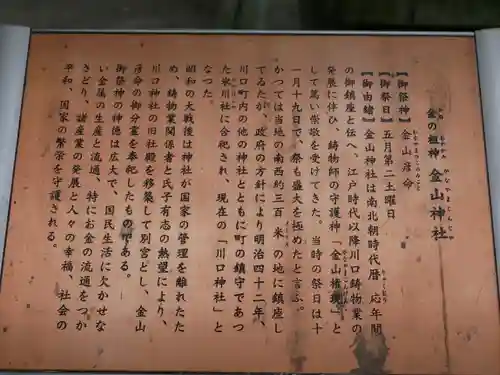 金の祖神 金山神社
かね おやがみ かなやまじんじゃ
【御祭神】金山彦命
かなやまひこのみこと
【御祭日】五月第二土曜日
【御由緒】金山神社は南北朝時代暦応年間
の御鎮座と伝へ、江戸時代以降川口鋳物業の
発展に伴ひ、鋳物師の守護神「金山権現」と
して篤い崇敬を受けてきた。当時の祭日は十
一月十九日で、祭も盛大を極めたと言ふ。
かつては当地の南西約三百米の地に鎮座し
てゐるが、政府の方針により明治四十二年、
川口町内の他の神社とともに町の鎮守であつ
た氷川社に合祀され、現在の「川口神社」と
なつた。
昭和の大戦後は神社が国家の管理を離れたた
め、鋳物業関係者と氏子有志の熱望により、
川口神社の旧社殿を移築して別宮とし、金山
彦命の御分霊を奉祀したものである。
御祭神の神徳は広大で、国民生活に欠かせな
い金属の生産と流通、特にお金の流通をつか
さどり、諸産業の発展と人々の幸福、社会の
平和、国家の繁栄を守護される。